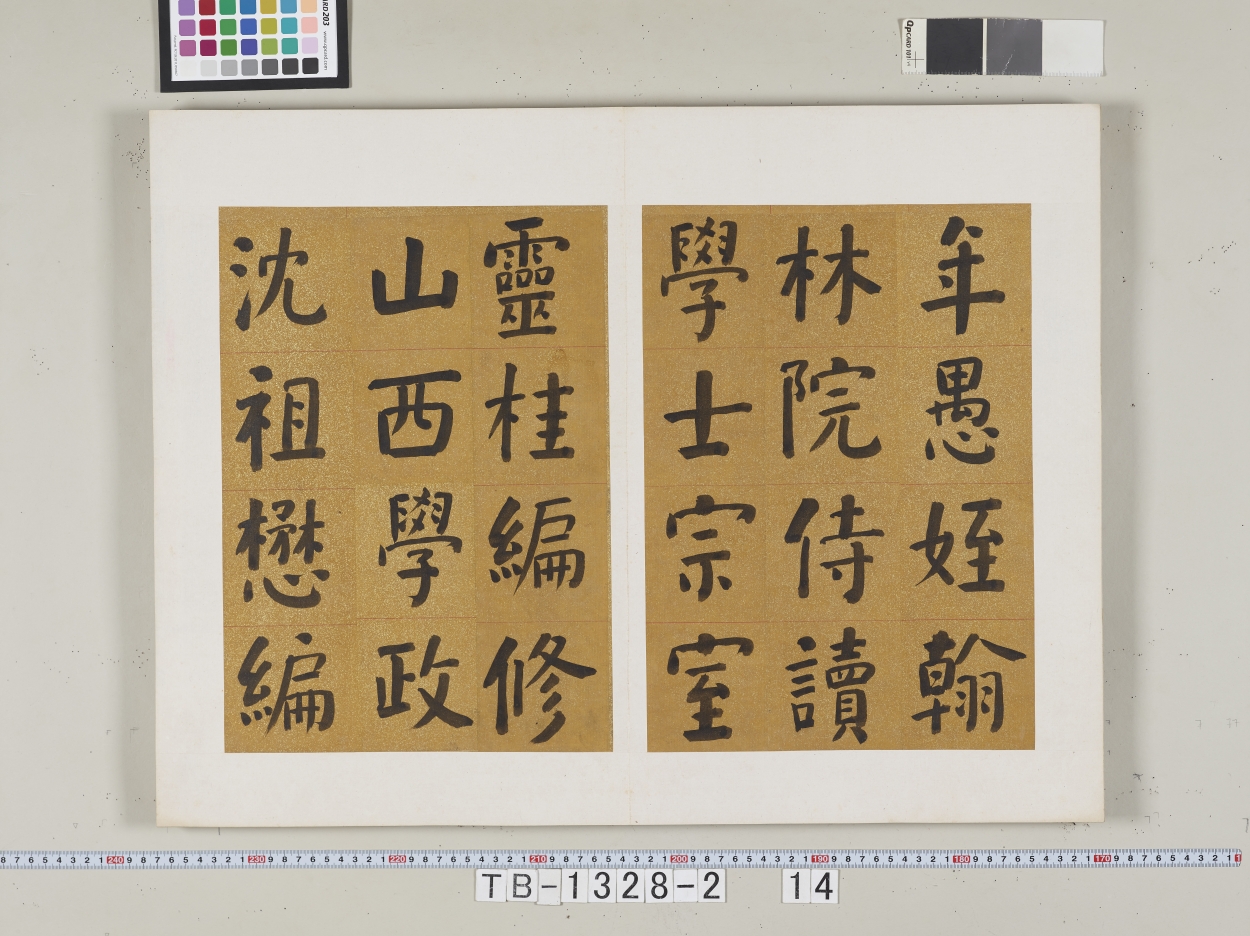 年愚姪翰
林院侍讀
學士宗室
靈桂編修
山西學政
沈祖懋編
TB-1328-2 14